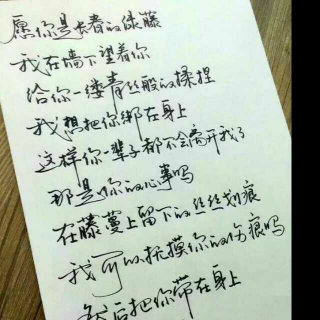 愿你是长春的绿藤
我在墙下望着你
给你一缕青丝般的揉捏
我想把你绑在身上
这样你一辈子都不会离开我了
那是你的心事吗
在藤蔓上留下的丝丝划痕
我可以抚摸你的伤痕吗
然后把你带在身上